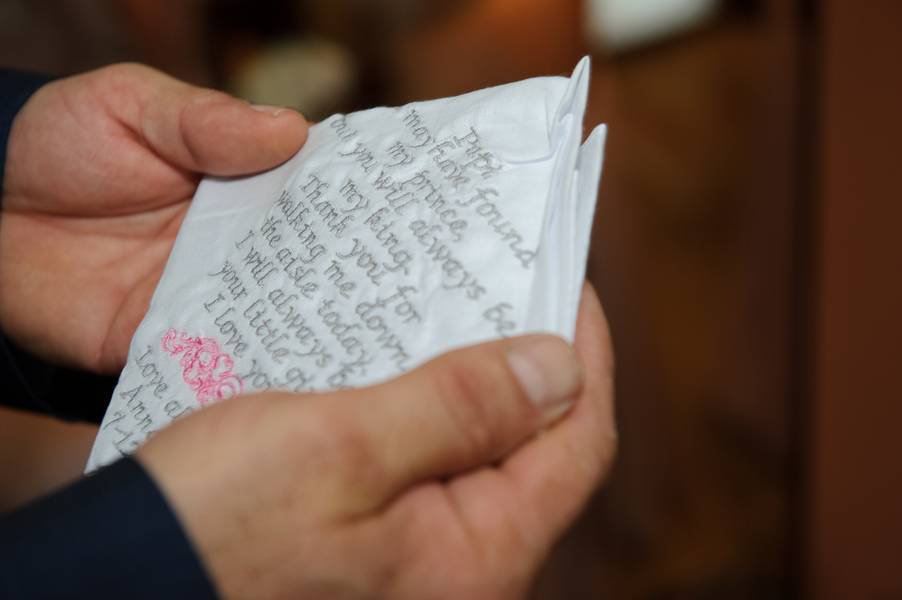 Papi,
may have found
my prince,
but you will always be
my king.
Thank you for
walking me down
the aisle today.
I will always b
your little gi
I love yo
Love a
Ann
7-1